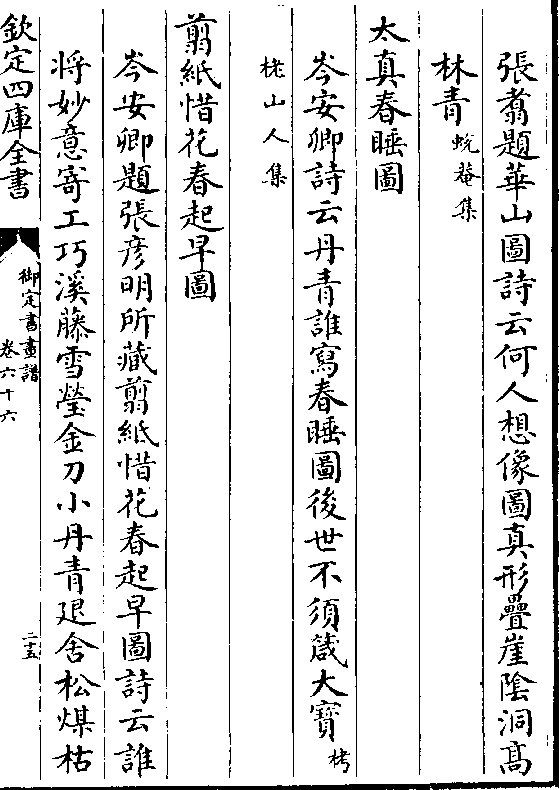 張翥題華山圖詩云何人想像圖真形疊崖陰洞髙
林青蜕菴集
太真春睡圖
岑安卿詩云丹青誰寫春睡圖後世不須箴大寳栲
栳山人集
剪紙惜花春起早圖
岑安卿題張彦明所藏剪紙惜花春起早圖詩云誰
将妙意寄工巧溪藤雪瑩金刀小丹青退舍松煤枯
欽定四庫全書
御定書畫譜
卷六十六
二十五